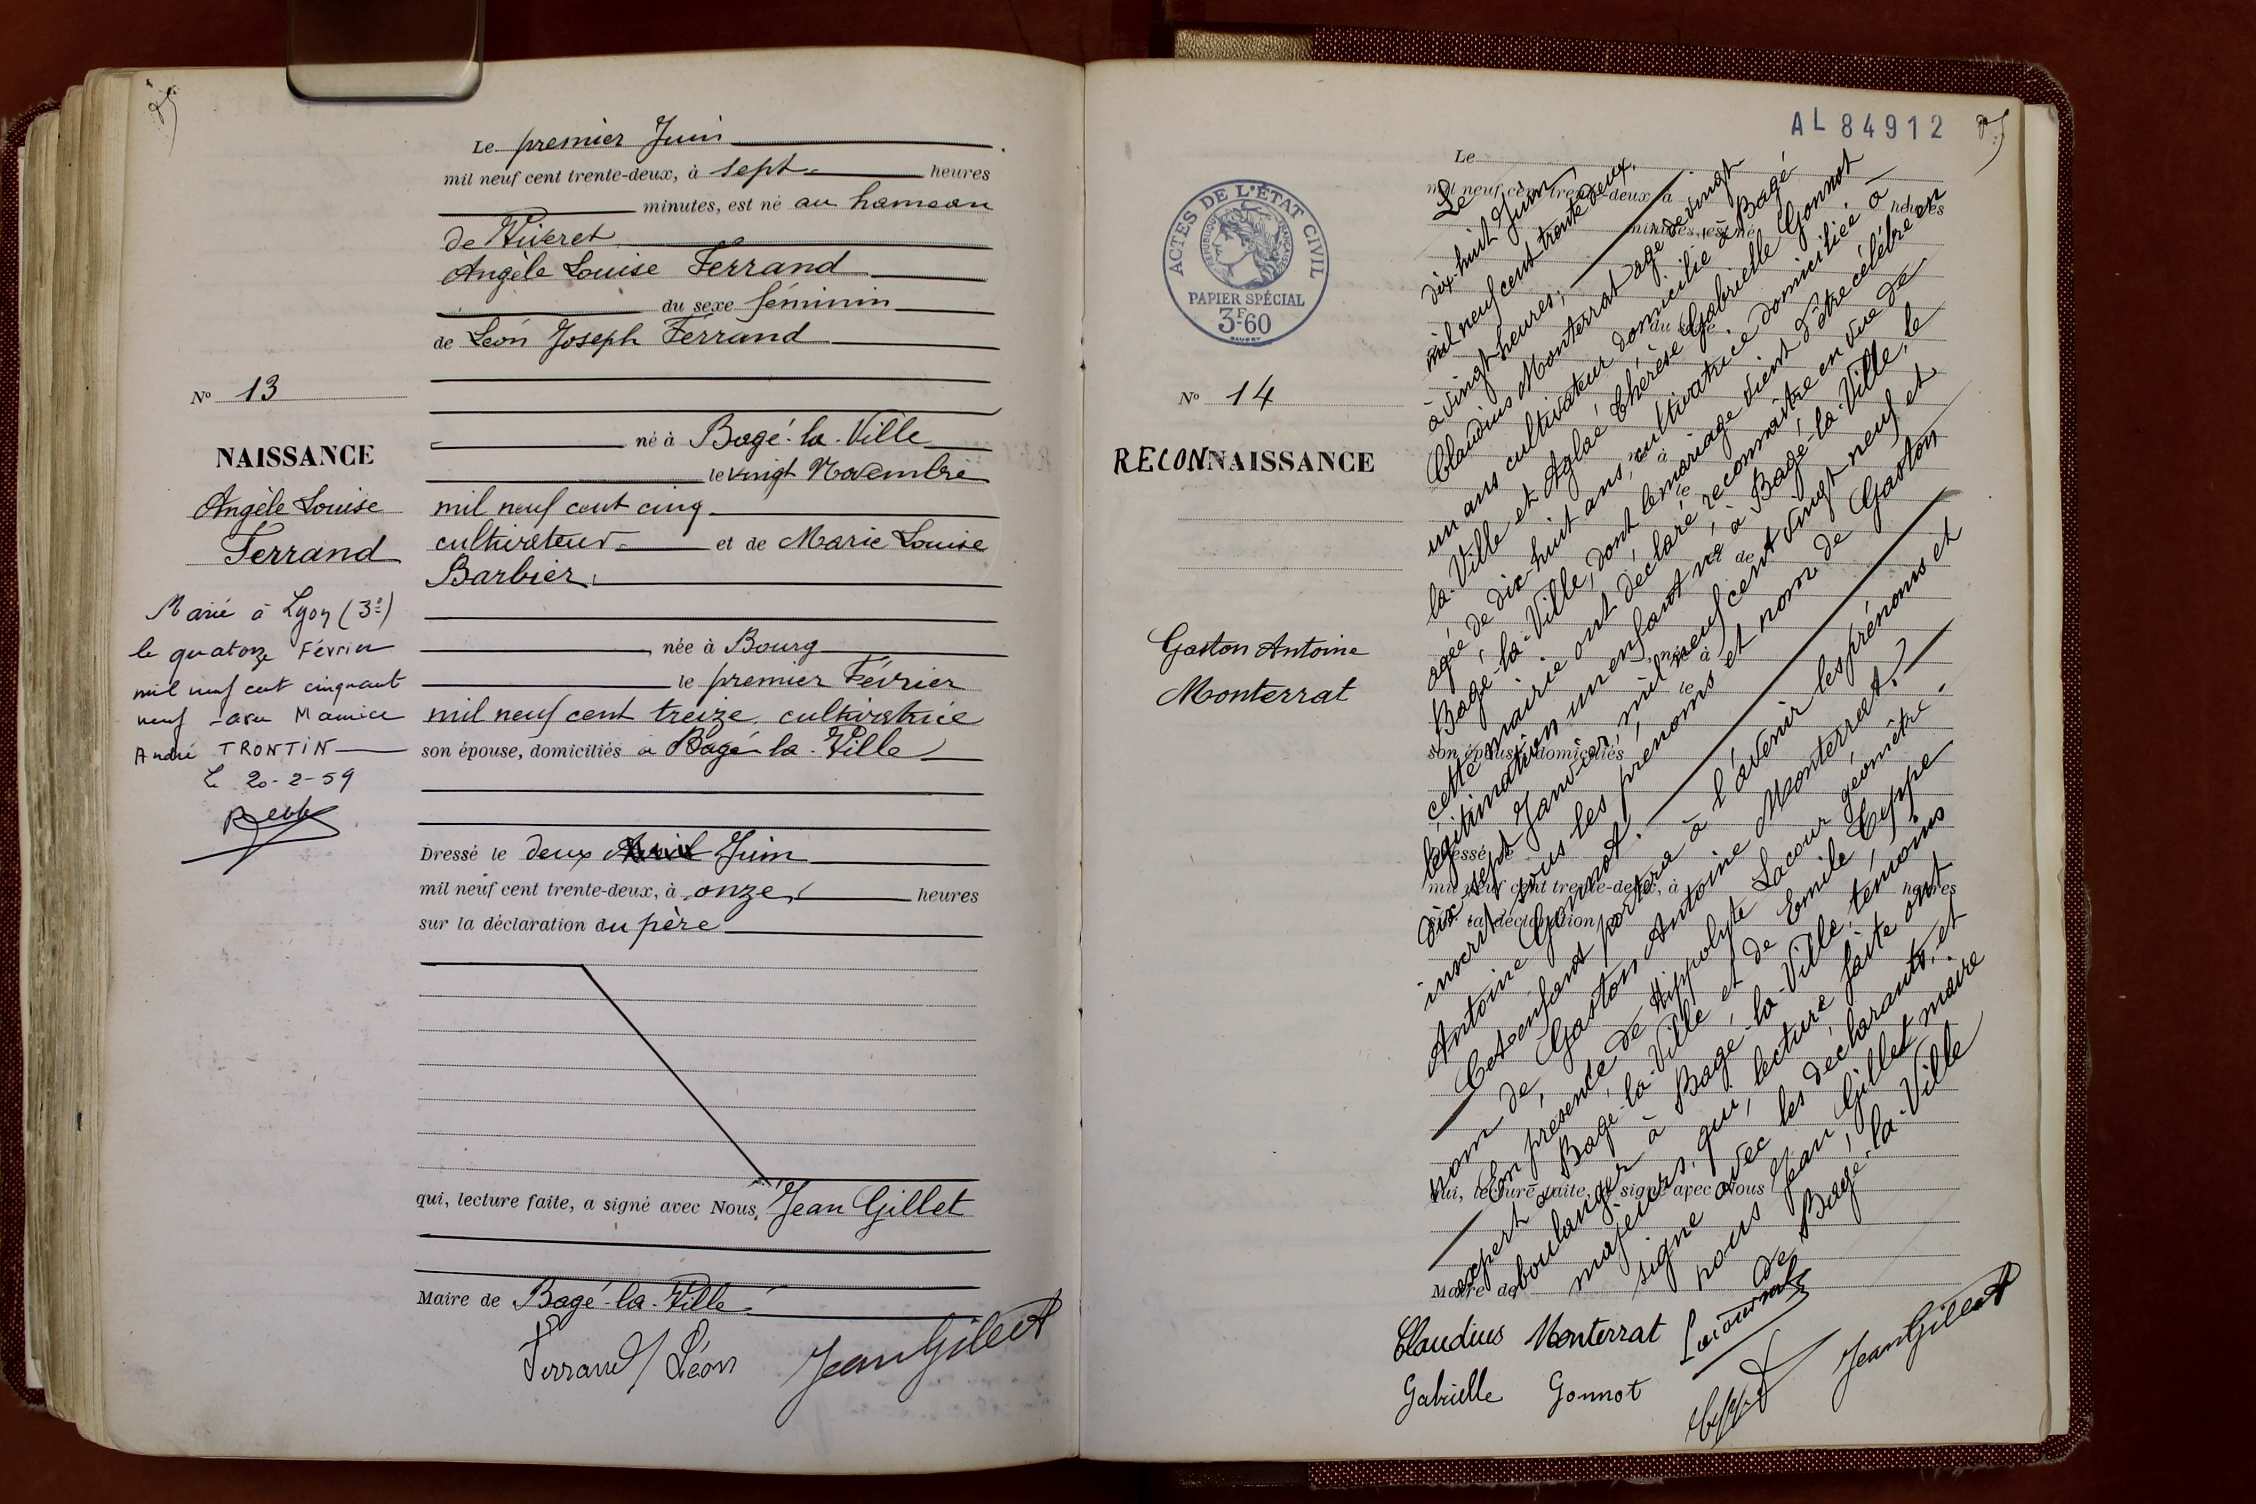 Le premier Juin
mil neuf cent trente-deux, à sept heures
minutes, est né au hameau
de Viveret
Angèle Louise Ferrand
du sexe féminin
de Léon Joseph Ferrand
né à Bagé-la-Ville
le vingt Novembre
mil neuf cent cinq
cultivateur et de Marie Louise
Barbier,
née à Bourg
le premier Février
mil neuf cent treize, cultivatrice
son épouse, domiciliés à Bagé-la-Ville
Dressé le deux Juin
mil neuf cent trente-deux, à onze heures
sur la déclaration du père
qui, lecture faite, a signé avec Nous, Jean Gillet
Maire de Bagé-la-Ville
Ferrand Léon Jean Gillet
No 13
NAISSANCE
Angèle Louise
Ferrand
Marié à Lyon (3e)
le quatorze Février
mil neuf cent cinquante
neuf avec Maurice
André TRONTIN
Le 20-2-59
AL 84912
ACTES DE L'ÉTAT CIVIL
RÉPUBLIQUE FRANÇAISE
PAPIER SPÉCIAL
3F.60
No 14
RECONNAISSANCE
Gaston Antoine
Monterrat
Le
mil neuf cent trente-deux, à heures
minutes, est né
du sexe
de
né à
le
et de
née à
le
son épouse, domiciliés
Dressé le
mil neuf cent trente-deux, à heures
sur la déclaration
qui, lecture faite, a signé avec Nous
Maire de
Le
dix-huit Juin,
mil neuf cent trente deux,
à vingt heures,
Claudius Monterrat âgé de vingt
un ans cultivateur domicilié à Bagé
la-Ville et Aglaé Thérèse Gabrielle Gonnot
âgée de dix-huit ans, cultivatrice domiciliée à
Bagé-la-Ville, dont le mariage vient d'être célébré en
cette mairie ont déclaré reconnaître en vue de
légitimation un enfant né à Bagé-la-Ville, le
dix sept Janvier, mil neuf cent vingt neuf et
inscrit sous les prénoms et nom de Gaston
Antoine Gonnot.
Cet enfant portera à l'avenir les prénoms et
nom de, Gaston Antoine Monterrat.
En présence de Hippolyte Lacour géomètre,
expert à Bagé-la-Ville et de Emile Cyppe
boulanger à Bagé-la-Ville, témoins
majeurs, qui, lecture faite ont
signé avec les déclarants, et
nous Jean Gillet maire
de Bagé-la-Ville
Claudius Monterrat
Gabrielle Gonnot
Jean Gillet